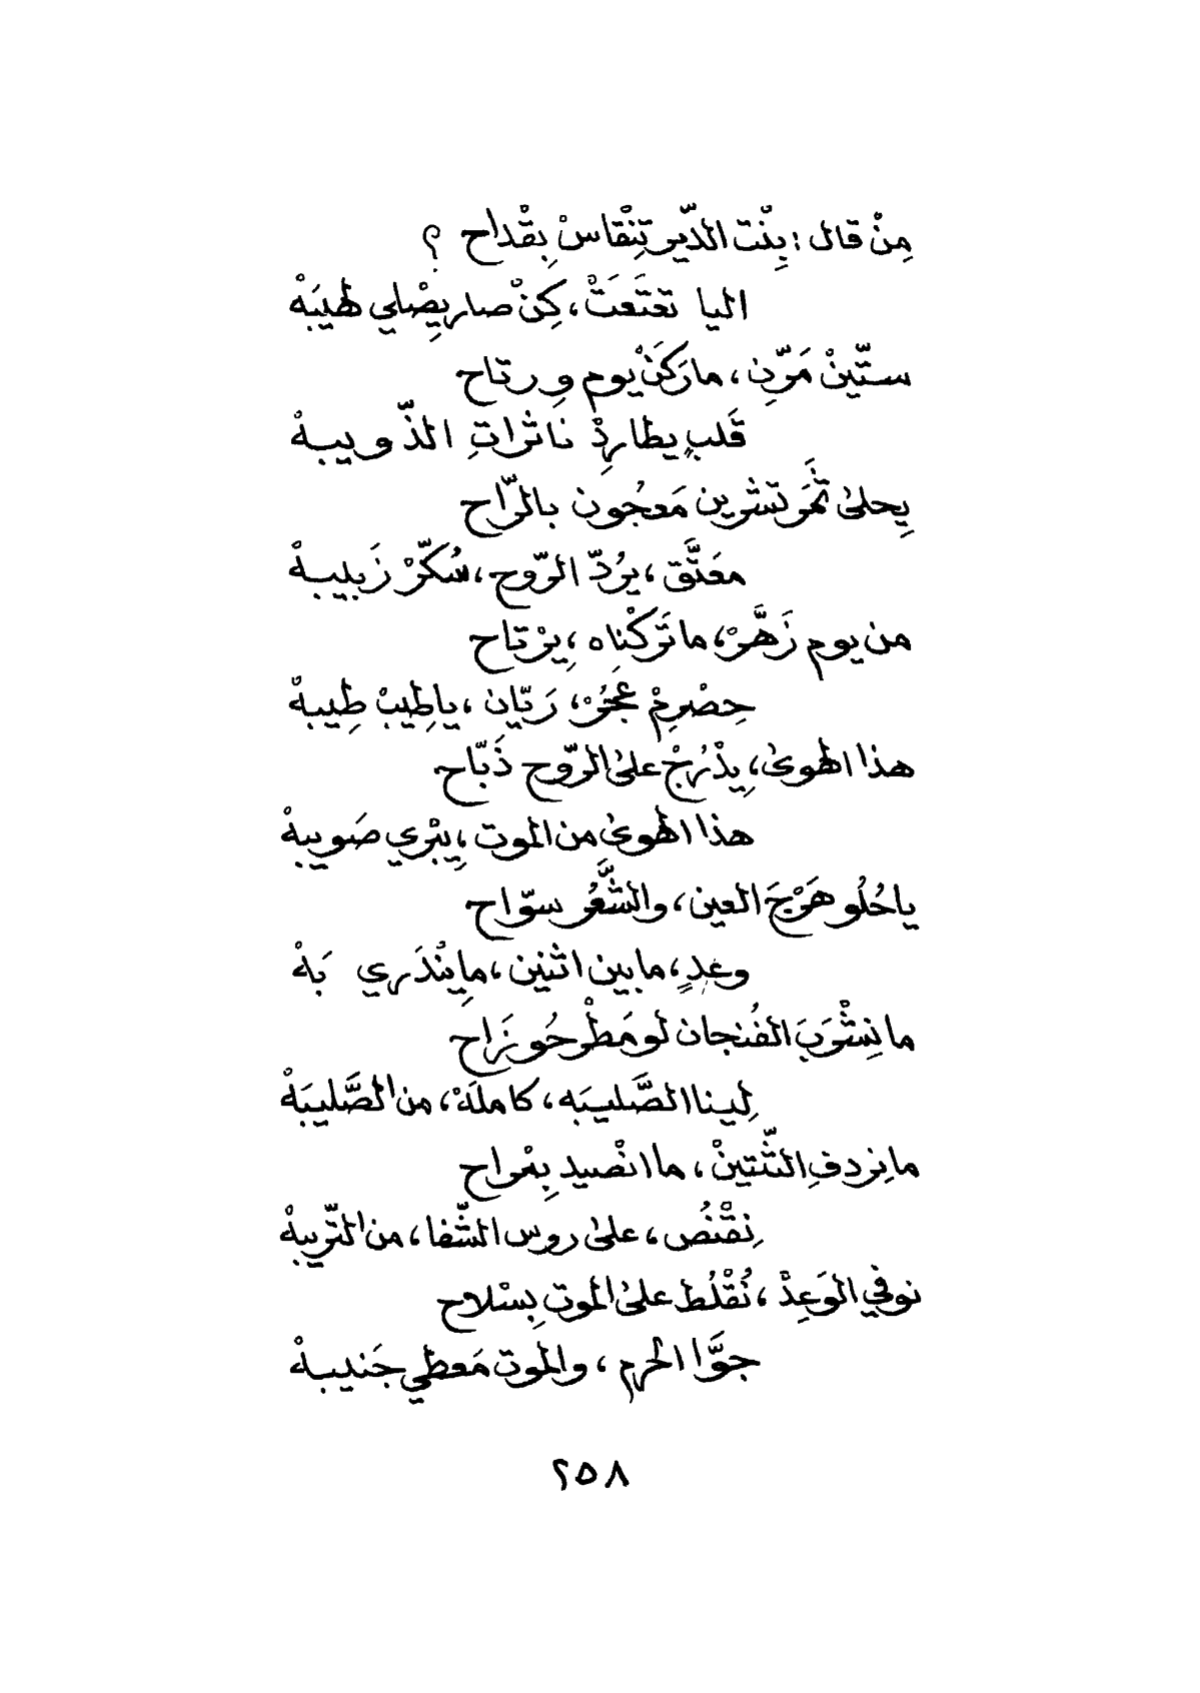 مِنْ قال : بِنْت الدّير تِنْقاسْ بِقْداح ؟
اليا تعتَعَتْ، كِنْ صار يِصْلي لهيبَهْ
ستّينْ مَرّن، ما ركَنْ يوم وِرتاح
قَلبٍ يطارِدْ ناثراتِ الذّويبهْ
يِحلىٰ ثمَر تشرين مَعجُون بالرّاح
معَتَّق، يرُدّ الرّوح، سُكّرْ زَبيبهْ
من يوم زَهَّرْ، ما تَركْنِاه، يِرْتاح
حِضْرِمْ عَجُرْ، رَيّان، ياطِيبْ طِيبهْ
هذا الهوىٰ، يِدْرُجْ علىٰ الرّوح ذَبّاح
هذا الهوىٰ من الموت، يِبْري صَويبهْ
يا حُلُو هَرْجَ العين، والشَّعُر سوّاح
وعدٍ، ما بين اثنين، مايِنْدَري بَهْ
ما نِشْرَبَ الفُنجان لو مَطْرحُو نَزاح
لِينا الصَّليبَه، كاملَهْ، من الصَّليبَهْ
ما نِردفِ الثّنتينْ، ما انْصيد بِمْراح
نِقْنُص، علىٰ روس الشّفا، من التّريبهْ
نوفي الوَعِدْ، نُقْلُط علىٰ الموت بِسْلاح
جوَّا الحرم، والموت مَعطي جَنيبهْ
٢٥٨